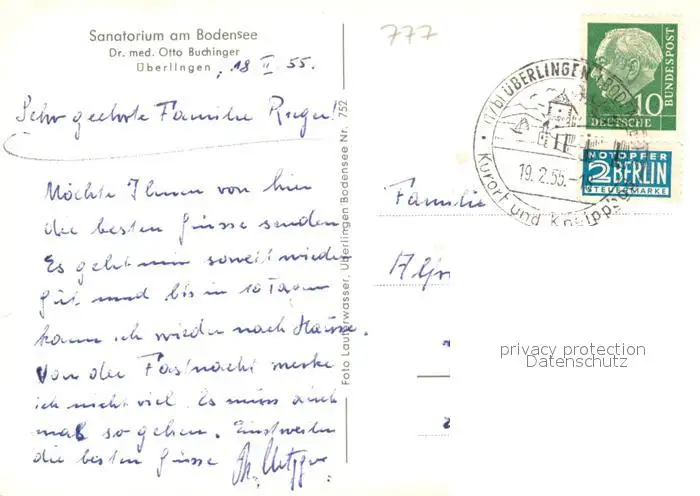 Sanatorium am Bodensee
Dr. med. Otto Buchinger
Überlingen, 18 II 55.
Sehr geehrte Familie Ruger!
Möchte Ihnen von hier
die besten Grüsse senden
Es geht mir soweit wieder
gut und bis in 10 Tagen
kann ich wieder nach Hause.
Von der Fastnacht merke
ich nicht viel. Es muss auch
mal so gehen. Einstweilen
die besten Grüsse
Foto Lauterwasser, Überlingen Bodensee Nr. 752
777
Familie
(17b) ÜBERLINGEN
19.2.55.-
Kurort und Kneipp
10
DEUTSCHE
BUNDESPOST
NOTOPFER
2 BERLIN
STEUERMARKE
privacy protection
Datenschutz